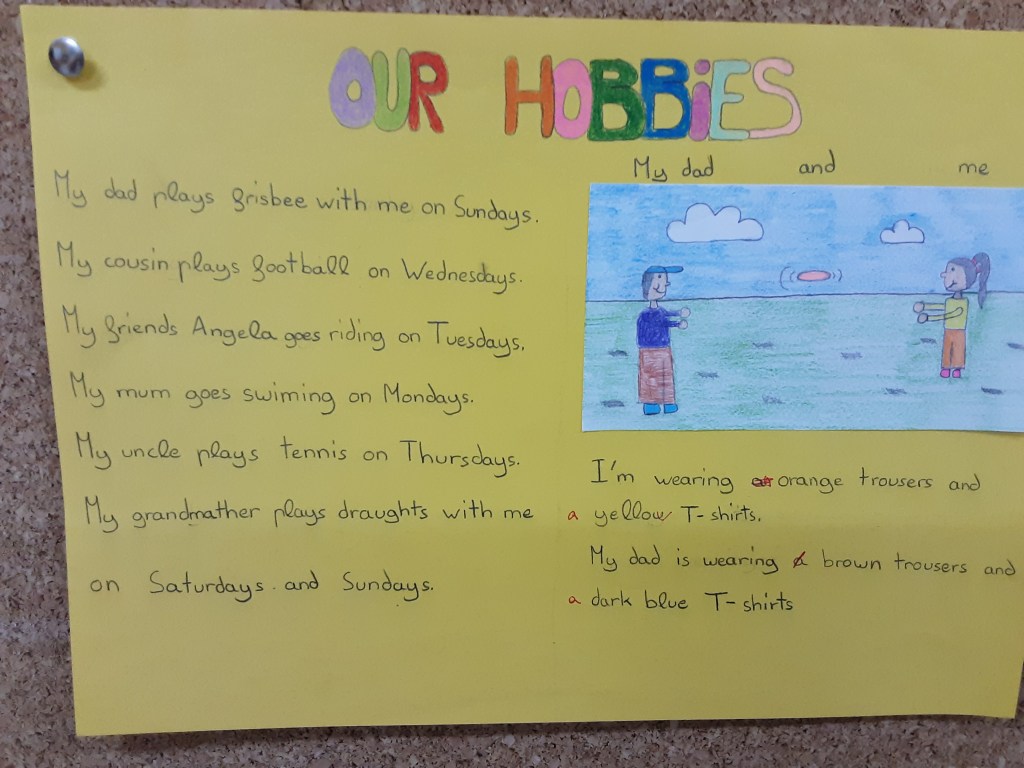 OUR HOBBiES
My dad plays frisbee with me on Sundays.
My cousin plays football on Wednesdays.
My friends Angela goes riding on Tuesdays.
My mum goes swiming on Mondays.
My uncle plays tennis on Thursdays.
My grandmather plays draughts with me
on Saturdays and Sundays.
My dad and me
I'm wearing orange trousers and
a yellow T-shirts.
My dad is wearing a brown trousers and
a dark blue T-shirts